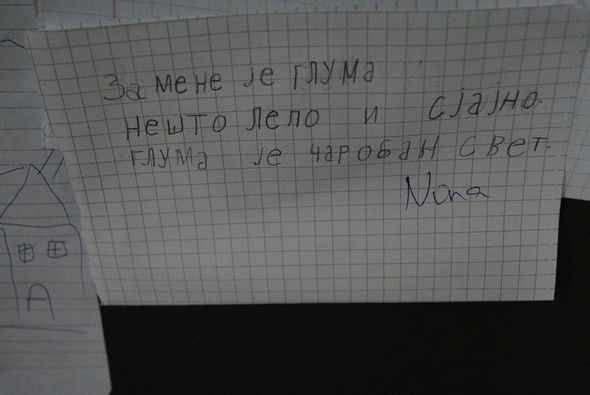 За мене је глума
нешто лепо и сјајно.
глума је чаробан свет.
Nona